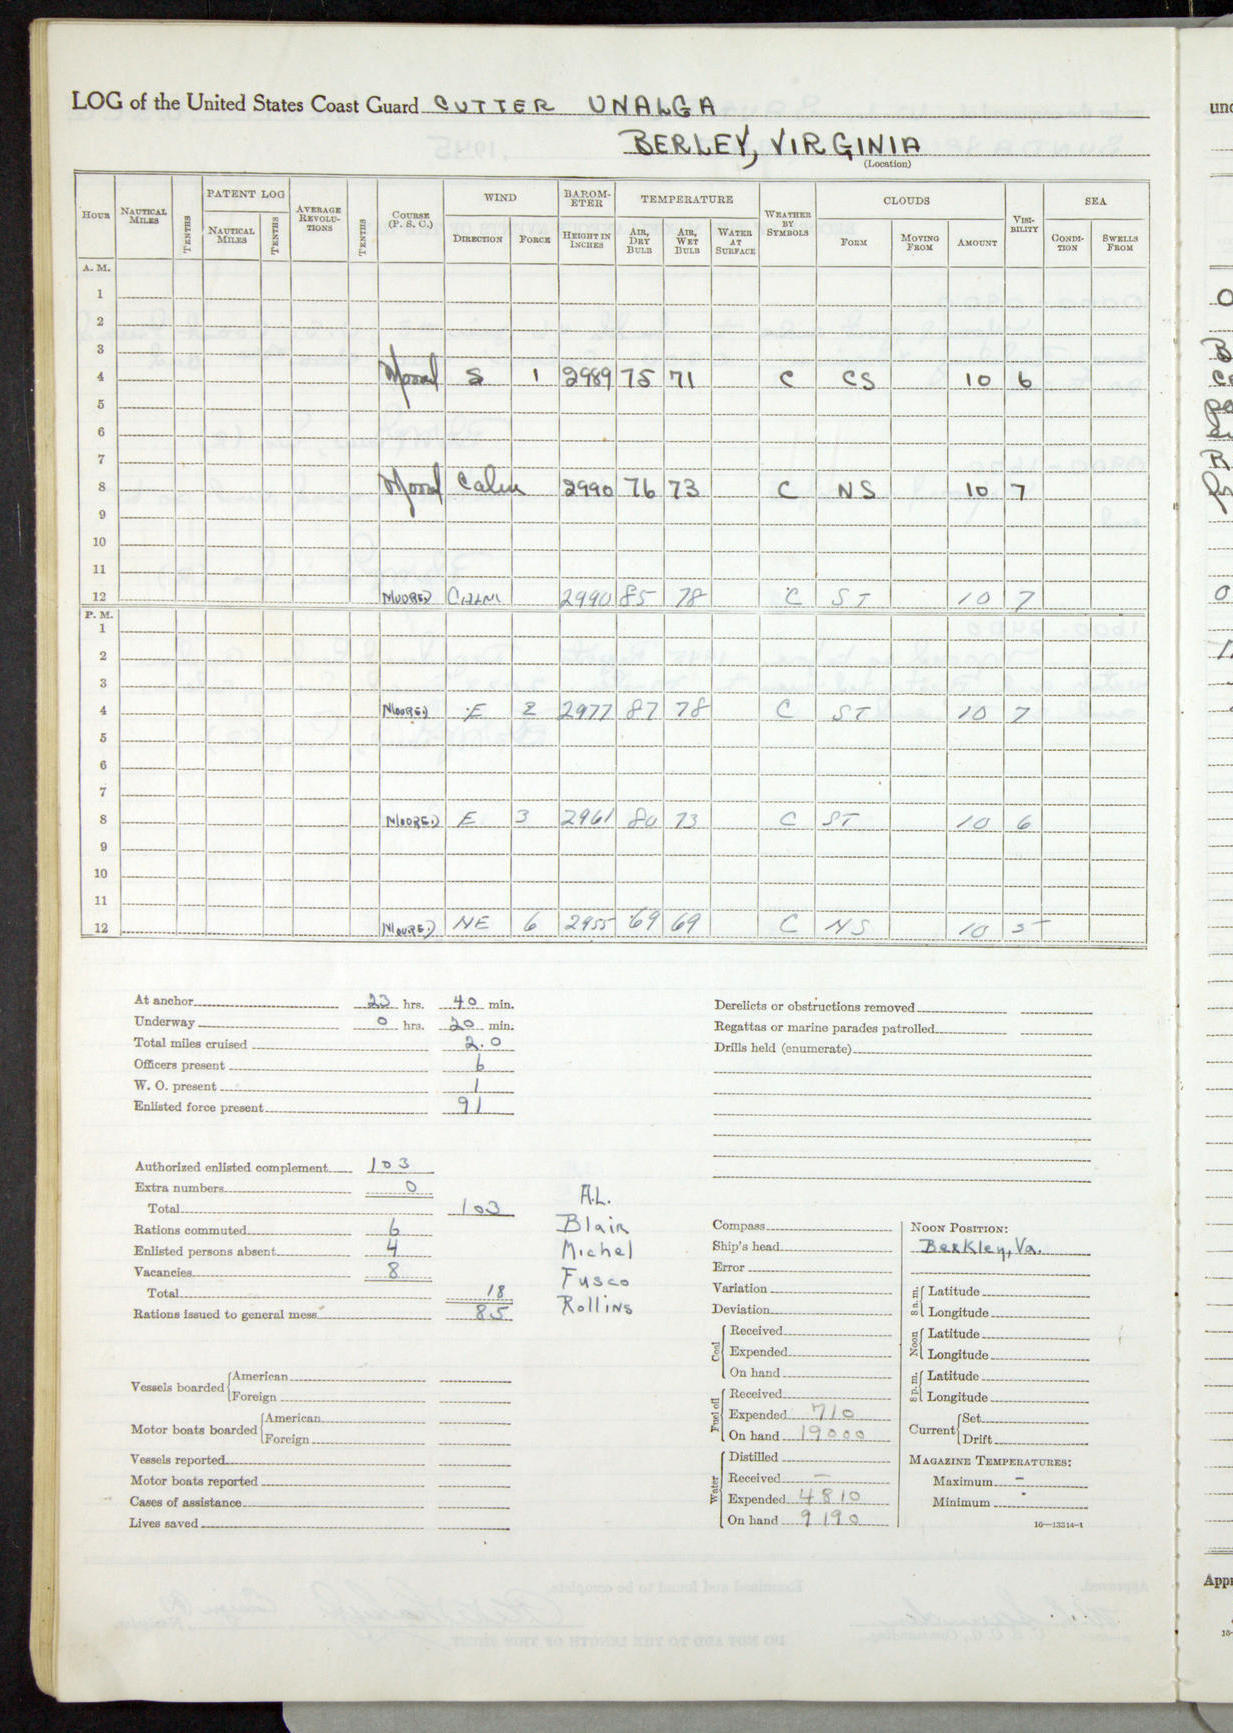 LOG of the United States Coast Guard CUTTER UNALGA
BERLEY, VIRGINIA
(Location)
HOUR NAUTICAL MILES TENTHS PATENT LOG NAUTICAL MILES TENTHS AVERAGE REVOLUTIONS TENTHS COURSE (P. S. C.) WIND DIRECTION FORCE BAROMETER HEIGHT IN INCHES TEMPERATURE AIR, DRY BULB AIR, WET BULB WATER AT SURFACE WEATHER BY SYMBOLS CLOUDS FORM MOVING FROM AMOUNT VISIBILITY SEA CONDITION SWELLS FROM
A. M.
1
2
3
4 Moored S 1 2989 75 71 C CS 10 6
5
6
7
8 Moored Calm 2990 76 73 C NS 10 7
9
10
11
12 MOORED CALM 2990 85 78 C ST 10 7
P. M.
1
2
3
4 MOORED E 2 2977 87 78 C ST 10 7
5
6
7
8 MOORED E 3 2961 80 73 C ST 10 6
9
10
11
12 MOORED NE 6 2955 69 69 C NS 10 5
At anchor 23 hrs. 40 min.
Underway 0 hrs. 20 min.
Total miles cruised 2.0
Officers present 6
W. O. present 1
Enlisted force present 91
Authorized enlisted complement 103
Extra numbers 0
Total 103
Rations commuted 6
Enlisted persons absent 4
Vacancies 8
Total 18
Rations issued to general mess 85
A.L.
Blair
Michel
Fusco
Rollins
Vessels boarded American
Foreign
Motor boats boarded American
Foreign
Vessels reported
Motor boats reported
Cases of assistance
Lives saved
Derelicts or obstructions removed
Regattas or marine parades patrolled
Drills held (enumerate)
Compass
Ship's head
Error
Variation
Deviation
Coal Received
Expended
On hand
Fuel oil Received
Expended 710
On hand 19000
Water Distilled
Received —
Expended 4810
On hand 9190
NOON POSITION:
Berkley, Va.
8 a. m. Latitude
Longitude
Noon Latitude
Longitude
8 p. m. Latitude
Longitude
Current Set
Drift
MAGAZINE TEMPERATURES:
Maximum –
Minimum
16—13314-1